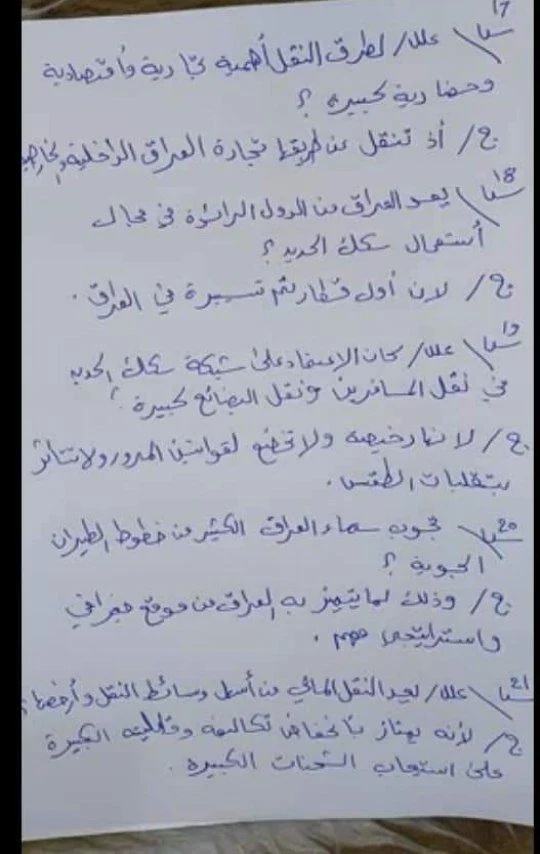 س17/ علل/ لطرق النقل أهمية تجارية وأقتصادية
وحضارية كبيره ؟
ج/ أذ تنقل عن طريقها تجارة العراق الداخلية والخارجية
س18/ يعد العراق من الدول الرائدة في مجال
أستعمال سكك الحديد ؟
ج/ لان أول قطار تم تسيرة في العراق .
س19/ علل/ كان الاعتماد على شبكة سكك الحديد
في نقل المسافرين ونقل البضائع كبيرة ؟
ج/ لانها رخيصه ولا تخضع لقوانين المرور ولا تتأثر
بتقلبات الطقس .
س20/ تجوب سماء العراق الكثير من خطوط الطيران
الجوية ؟
ج/ وذلك لما يتميز به العراق من موقع جغرافي
واستراتيجي مهم .
س21/ علل/ يعد النقل المائي من أسهل وسائط النقل وأرخصها ؟
ج/ لأنه يمتاز بأنخفاض تكاليفه وقابليته الكبيرة
على استيعاب الشحنات الكبيره .